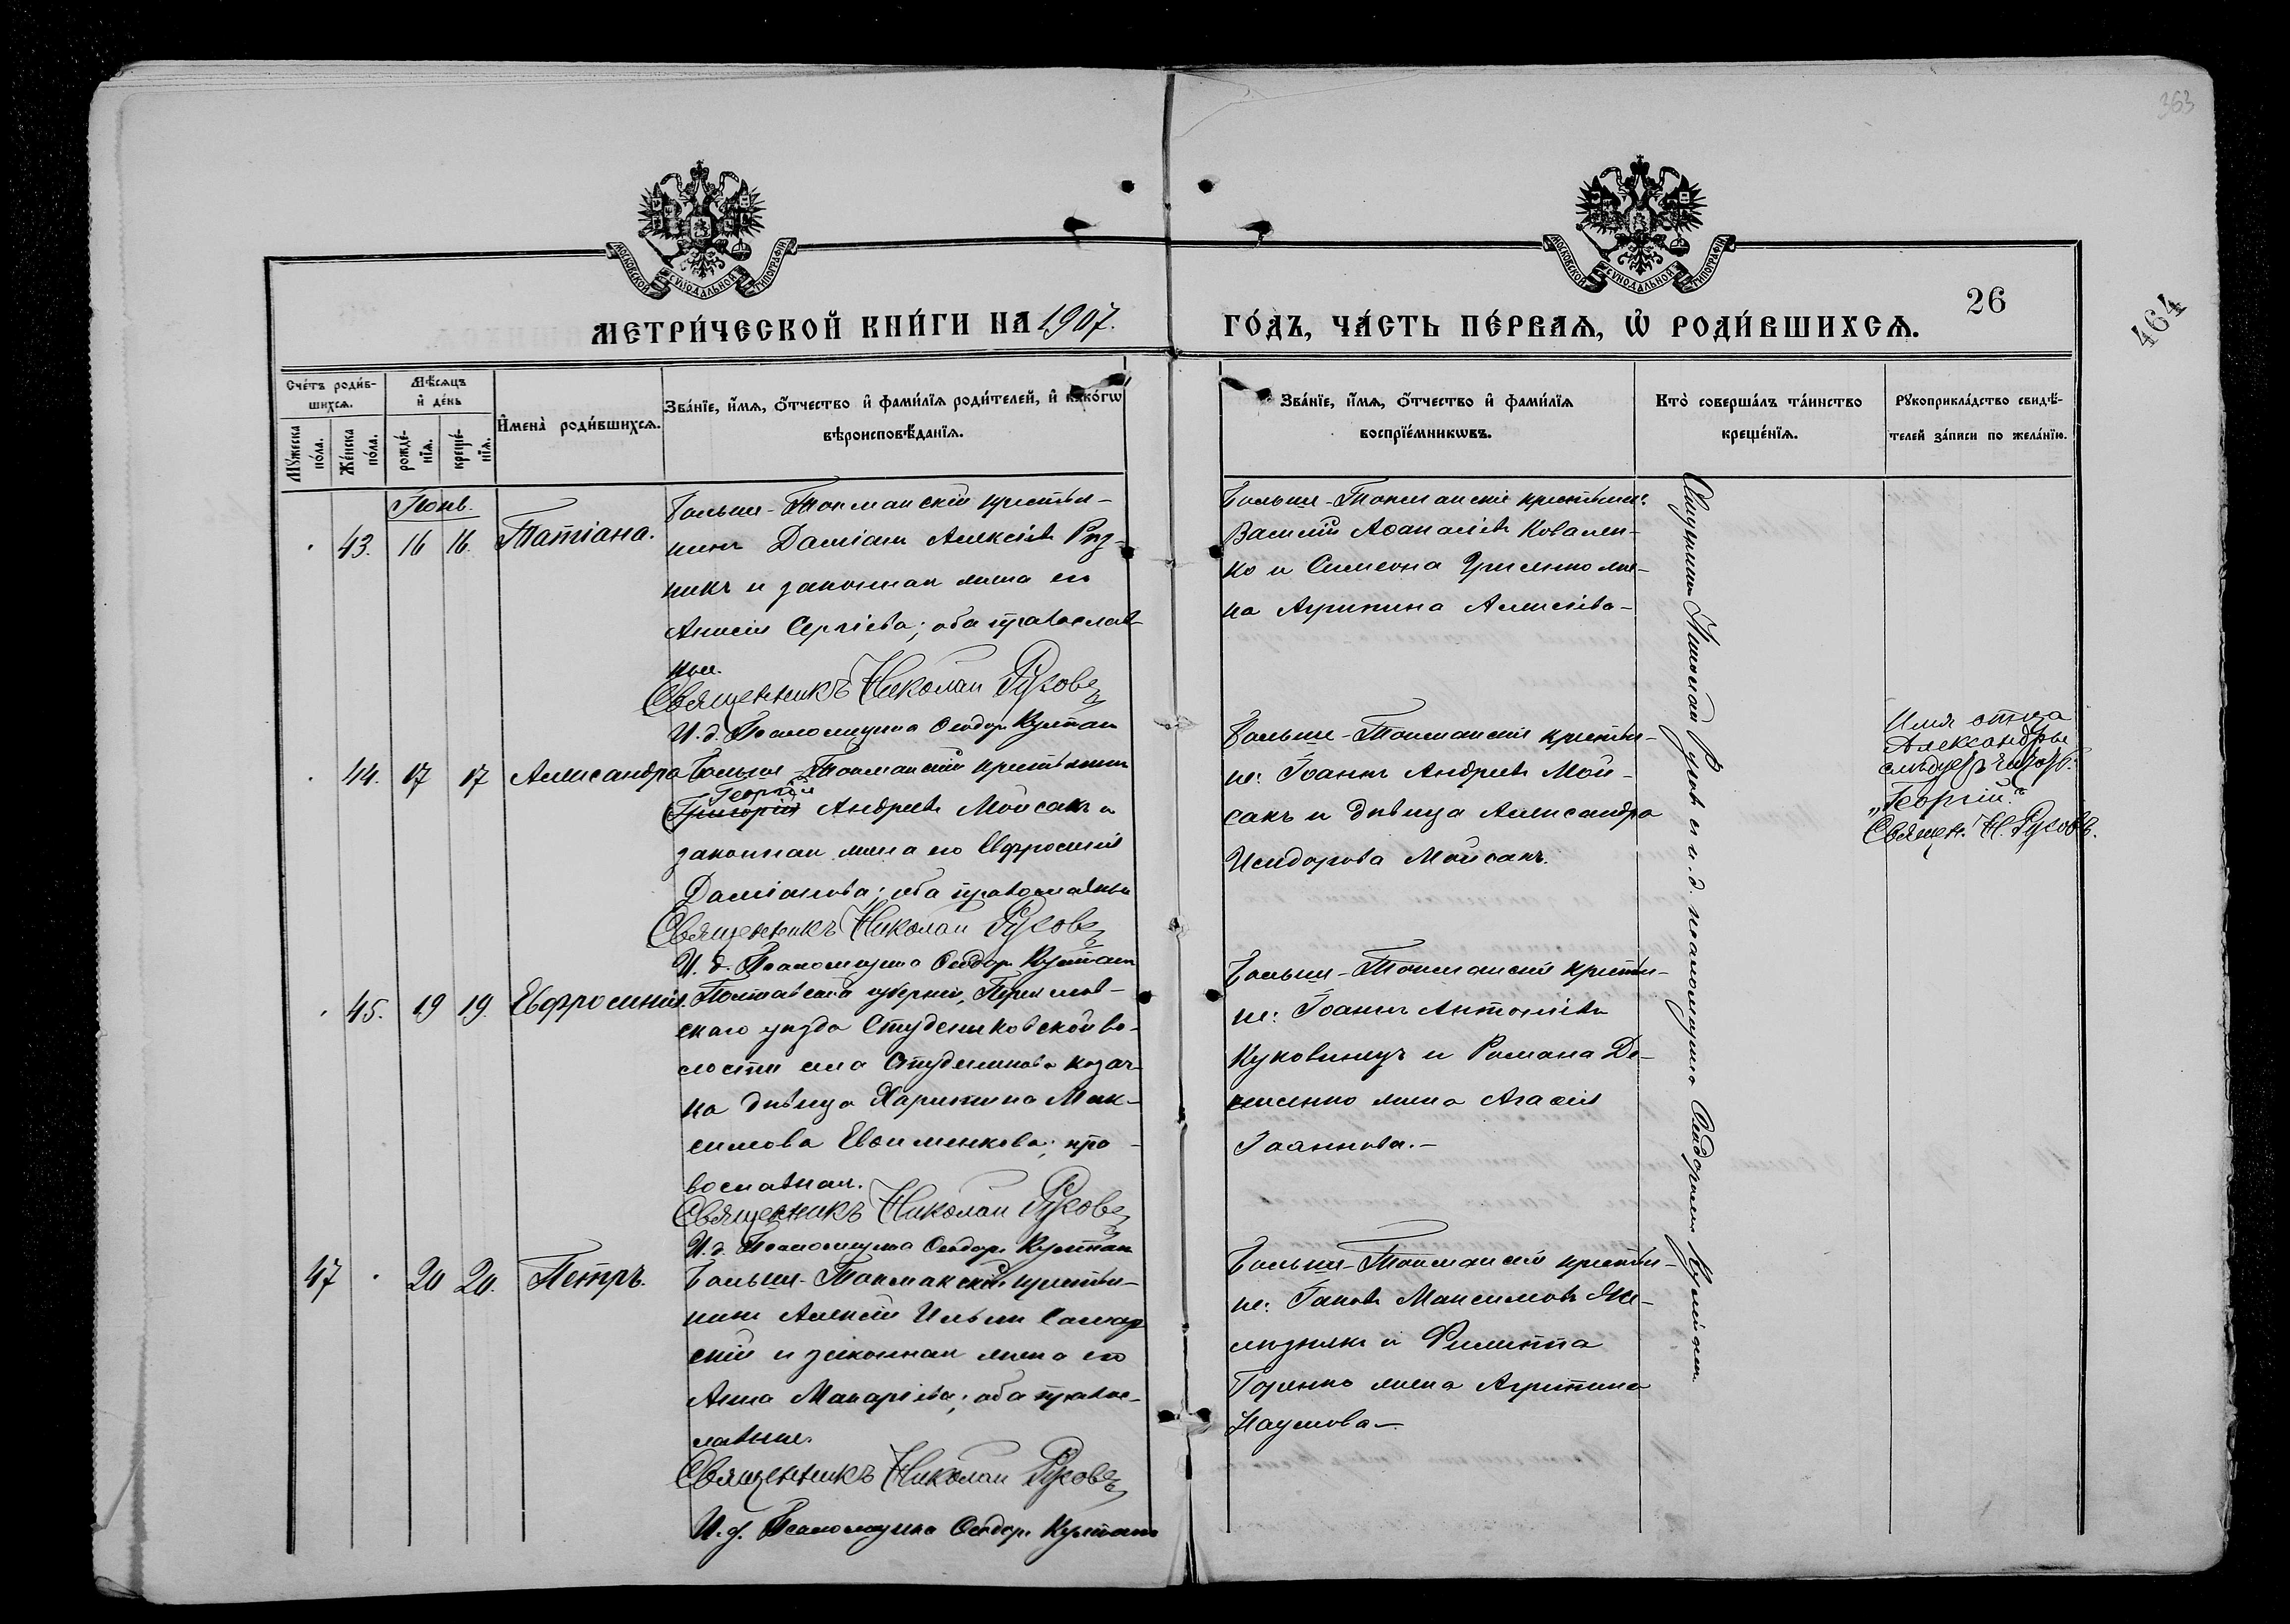 363
МОСКОВСКОЙ СѴНОДАЛЬНОЙ ТИПОГРАФІИ
МОСКОВСКОЙ СѴНОДАЛЬНОЙ ТИПОГРАФІИ
26
464
МЕТРИ́ЧЕСКОЙ КНИ́ГИ НА 1907.
ГО́ДЪ, ЧА́СТЬ ПЕ́РВАѦ, Ѡ҆ РОДИ́ВШИХСѦ.
Сче́тъ роди́в-
шихсѧ.
Му́жеска по́ла.
Же́нска по́ла.
Мѣ́сѧцъ
и҆ де́нь
рожде́-
нїѧ.
креще́-
нїѧ.
И҆мена̀ роди́вшихсѧ.
Зва́нїе, и҆́мѧ, ѻ҆́тчество и҆ фами́лїѧ роди́телей, и҆ како́гѡ
вѣроисповѣ́данїѧ.
Зва́нїе, и҆́мѧ, ѻ҆́тчество и҆ фами́лїѧ
воспрїе́мникѡвъ.
Кто̀ соверша́лъ та́инство
креще́нїѧ.
Рꙋкоприкла́дство свидѣ́-
телей за́писи по жела́нїю.
Іюнь.
43. 16 16. Татіана.
Больше-Токмакскій крестья-
нинъ Даміанъ Алексіевъ Рѣз-
никъ и законная жена его
Анисія Сергіева; оба православ-
ные.
Священникъ Николай Русовъ
И. д. Псаломщика Ѳеодоръ Култашъ
Больше-Токмакскіе крестьяне:
Василій Аѳанасіевъ Ковален-
ко и Симеона Гриценко же-
на Агрипина Алексіева-
44. 17 17 Александра
Больше-Токмакскій крестьянинъ
Георгій
Григорій Андреевъ Мойсакъ и
законная жена его Евфросинія
Даміанова; оба православные
Священникъ Николай Русовъ
И. д. Псаломщика Ѳеодоръ Култашъ
Больше-Токмакскіе крестья-
не: Іоаннъ Андреевъ Мой-
сакъ и дѣвица Александра
Исидорова Мойсакъ.
Имя отца
Александры
слѣдуетъ читать:
„Георгій".
Священ. Н. Русовъ.
45. 19 19. Евфросинія.
Полтавской губерніи, Переяслав-
скаго уѣзда Студениковской во-
лости села Студеникова козач-
ка дѣвица Харитина Мак-
симова Евѳименкова; пра-
вославная.
Священникъ Николай Русовъ
И. д. Псаломщика Ѳеодоръ Култашъ
Больше-Токмакскіе крестья-
не: Іоаннъ Антоніевъ
Куковинецъ и Романа До-
жена Агаѳія
Іоаннова.-
47 20 20. Петръ.
Больше-Токмакскій крестья-
нинъ Алексій Ильинъ Самар
скій и законная жена его
Анна Макаріева; оба право-
славные.
Священникъ Николай Русовъ
И. д. Псаломщика Ѳеодоръ Култашъ
Больше-Токмакскіе крестья-
не: Іаковъ Максимовъ Же-
лѣзнякъ и Филиппа
Горенко жена Агрипина
Наумова-
Священникъ Николай Русовъ съ и. д. псаломщика Ѳеодоромъ Култашемъ.